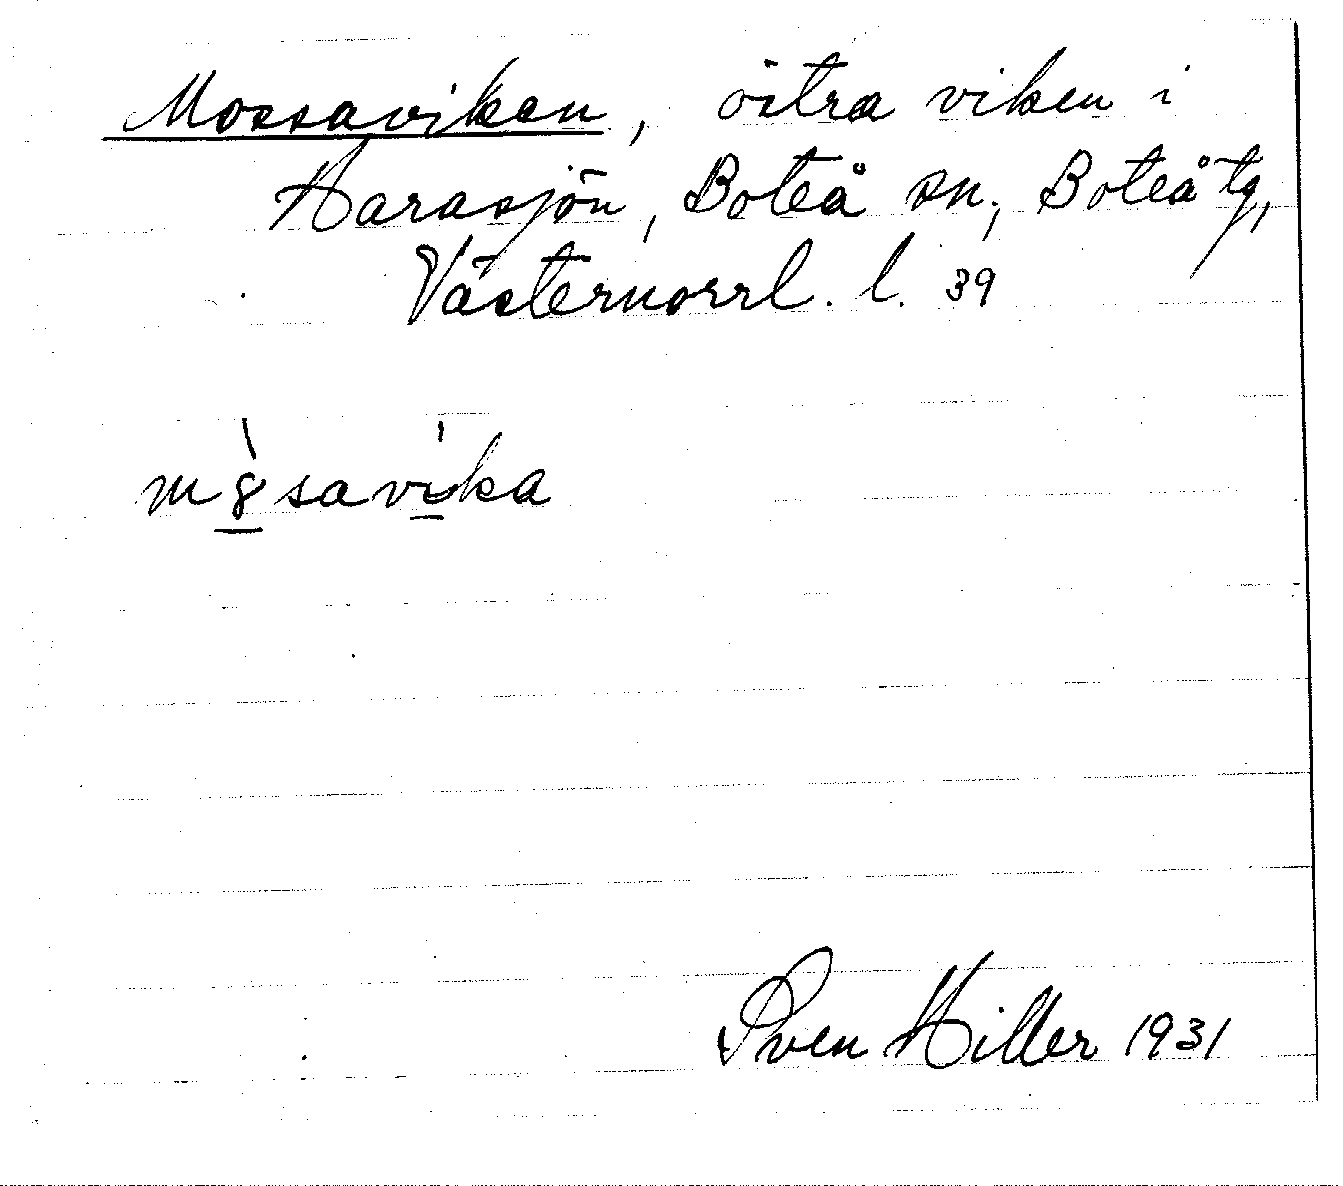 Mossaviken, östra viken i
Harasjön, Boteå sn, Boteå tg,
Västernorrl. l. 39
m8̀savi̍ka
Sven Hiller 1931